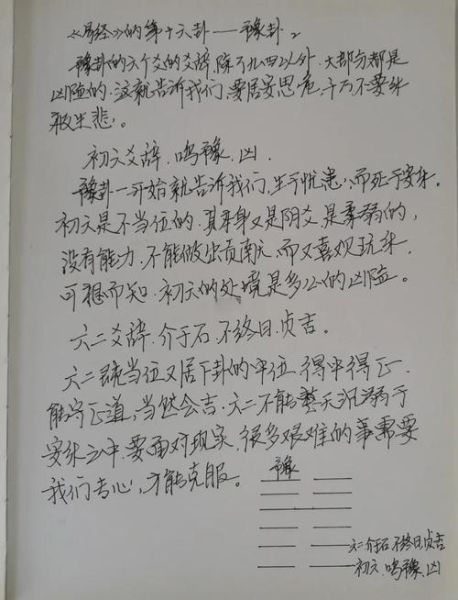 《易经》的第十六卦——豫卦。
豫卦的六个爻的爻辞,除了九四以外,大部分都是
凶险的,这就告诉我们,要居安思危,千万不要乐
极生悲。
初六爻辞,鸣豫,凶。
豫卦一开始就告诉我们,生于忧患,而死于安乐。
初六是不当位的,其本身又是阴爻是柔弱的,
没有能力,不能做出贡献,而又喜欢玩乐,
可想而知,初六的处境是多么的凶险。
六二爻辞,介于石,不终日,贞吉。
六二既当位又居下卦的中位,得中得正,
能守正道,当然会吉,六二不能整天沉溺于
安乐之中,要面对现实,很多艰难的事需要
我们专心,才能克服。
豫
六二介于石,不终日,贞吉
初六,鸣豫,凶